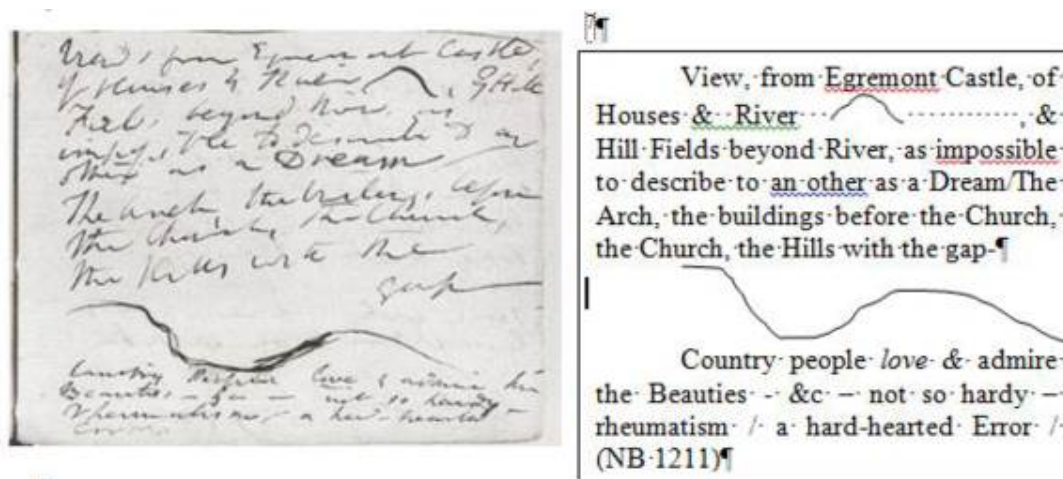 View, from Egremont Castle,
of Houses & River , & Hill
Fields beyond River, as
impossible to describe to an
other as a Dream
The Arch, the buildings, before
the Church, the Church,
the Hills with the
gap
Country People love & admire the
Beauties - &c - not so hardy -
rheumatism / a hard-hearted
Error
¶
View, from Egremont Castle, of
Houses & River , &
Hill Fields beyond River, as impossible
to describe to an other as a Dream/The
Arch, the buildings before the Church,
the Church, the Hills with the gap-¶
Country people love & admire
the Beauties - &c – not so hardy –
rheumatism / a hard-hearted Error /
(NB 1211)¶